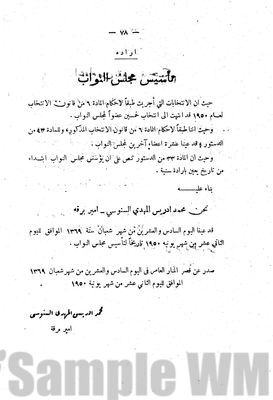 — ٧٨ —
ارادة
تأسيس مجلس النواب
حيث ان الانتخابات التي أجريت طبقاً لاحكام المادة ٦ من قانون الانتخاب
لعام ١٩٥٠ قد انتهت الى انتخاب خمسين عضواً لمجلس النواب.
وحيث اننا طبقاً لاحكام المادة ٦ من قانون الانتخاب المذكور، وللمادة ٤٣ من
الدستور قد عينا عشرة اعضاء آخرين لمجلس النواب.
وحيث ان المادة ٣٣ من الدستور تنص على ان يؤسس مجلس النواب ابتداء
من تاريخ يعين بارادة سنية.
بناء عليه
نحن محمد ادريس المهدي السنوسي - امير برقه
قد عينا اليوم السادس والعشرين من شهر شعبان سنة ١٣٦٩ الموافق لليوم
الثاني عشر من شهر يونية ١٩٥٠ تاريخاً لتأسيس مجلس النواب.
صدر عن قصر المنار العامر في اليوم السادس والعشرين من شهر شعبان ١٣٦٩
الموافق لليوم الثاني عشر من شهر يونية ١٩٥٠
محمد ادريس المهدي السنوسي
امير برقة
Sample WM